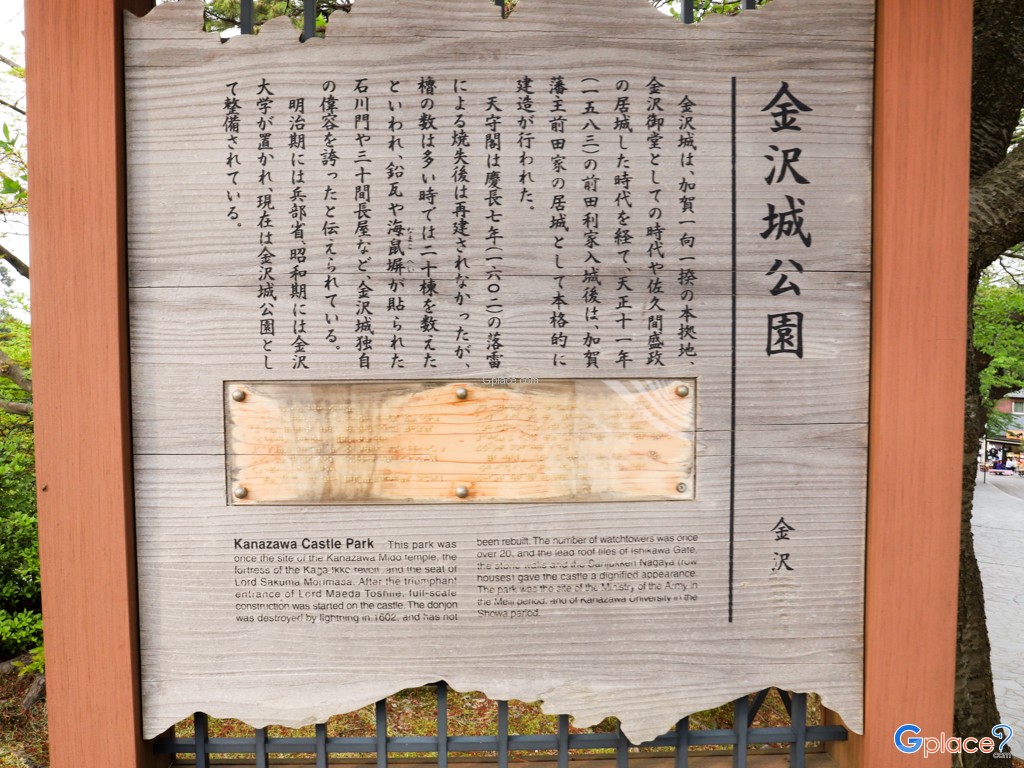 金沢城公園
金沢
金沢城は、加賀一向一揆の本拠地、
金沢御堂としての時代や佐久間盛政
の居城した時代を経て、天正十一年
(一五八三)の前田利家入城後は、加賀
藩主前田家の居城として本格的に
建造が行われた。
天守閣は慶長七年(一六〇二)の落雷
による焼失後は再建されなかったが、
櫓の数は多い時では二十棟を数えた
といわれ、鉛瓦や海鼠塀が貼られた
なまこ へい
石川門や三十間長屋など、金沢城独自
の偉容を誇ったと伝えられている。
明治期には兵部省、昭和期には金沢
大学が置かれ、現在は金沢城公園とし
て整備されている。
Kanazawa Castle Park This park was
once the site of the Kanazawa Mido temple, the
fortress of the Kaga Ikko revolt, and the seat of
Lord Sakuma Morimasa. After the triumphant
entrance of Lord Maeda Toshiie, full-scale
construction was started on the castle. The donjon
was destroyed by lightning in 1602, and has not
been rebuilt. The number of watchtowers was once
over 20, and the lead roof tiles of Ishikawa Gate,
the stone walls and the Sanjukken Nagaya (row
houses) gave the castle a dignified appearance.
The park was the site of the Ministry of the Army in
the Meiji period, and of Kanazawa University in the
Showa period.
Gplace.com
Gplace
.com